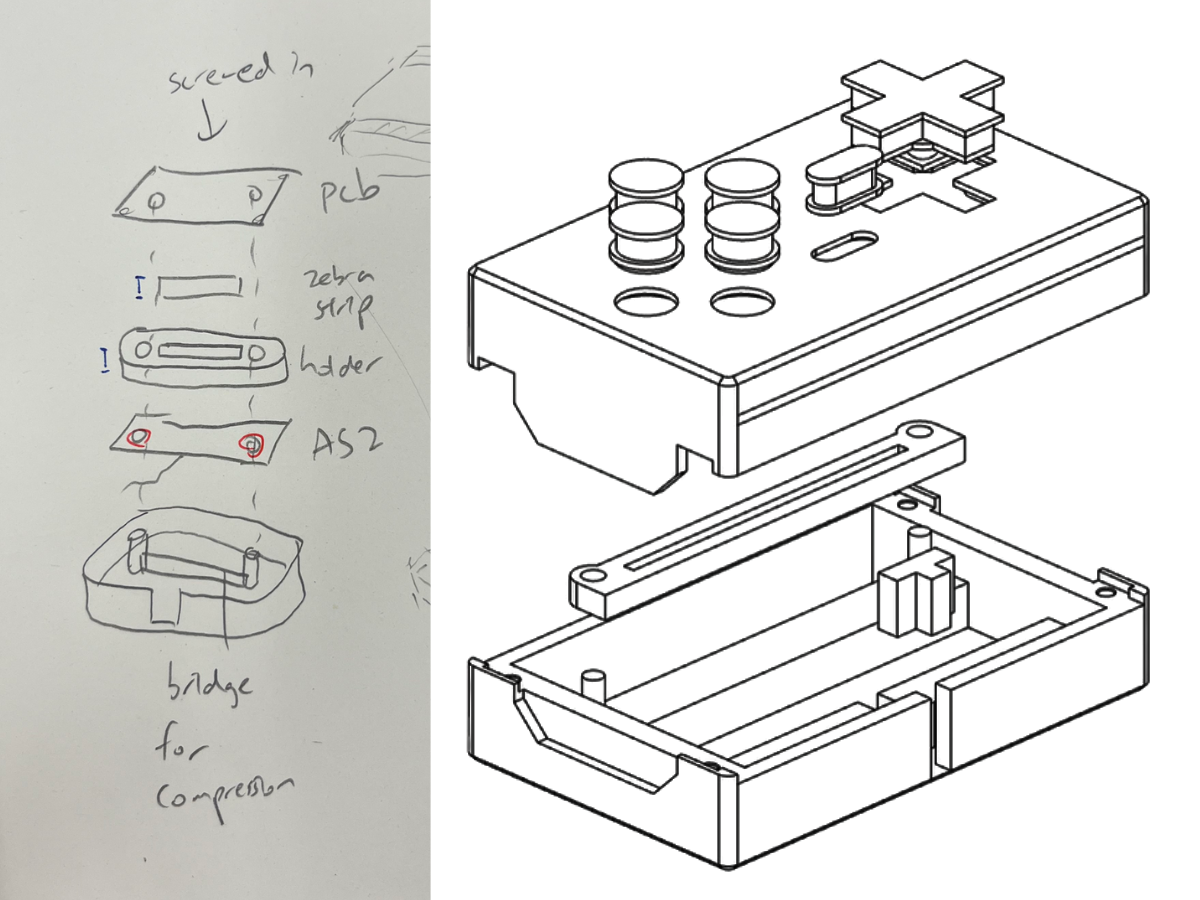 screwed in
pcb
zebra
strip
holder
AS2
bridge
for
compression